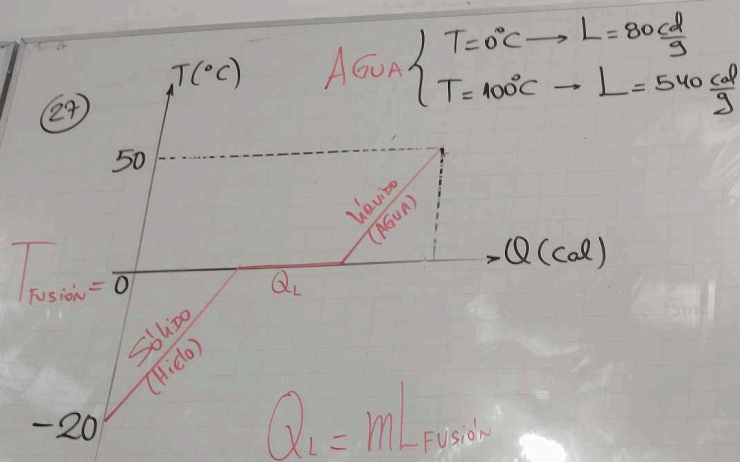 27
T(°C)
AGUA { T=0°C → L=80 cal/g
T=100°C → L=540 cal/g
50
LÍQUIDO
(AGUA)
T FUSIÓN = 0
Q(cal)
QL
SÓLIDO
(HIELO)
-20
QL = mL FUSIÓN